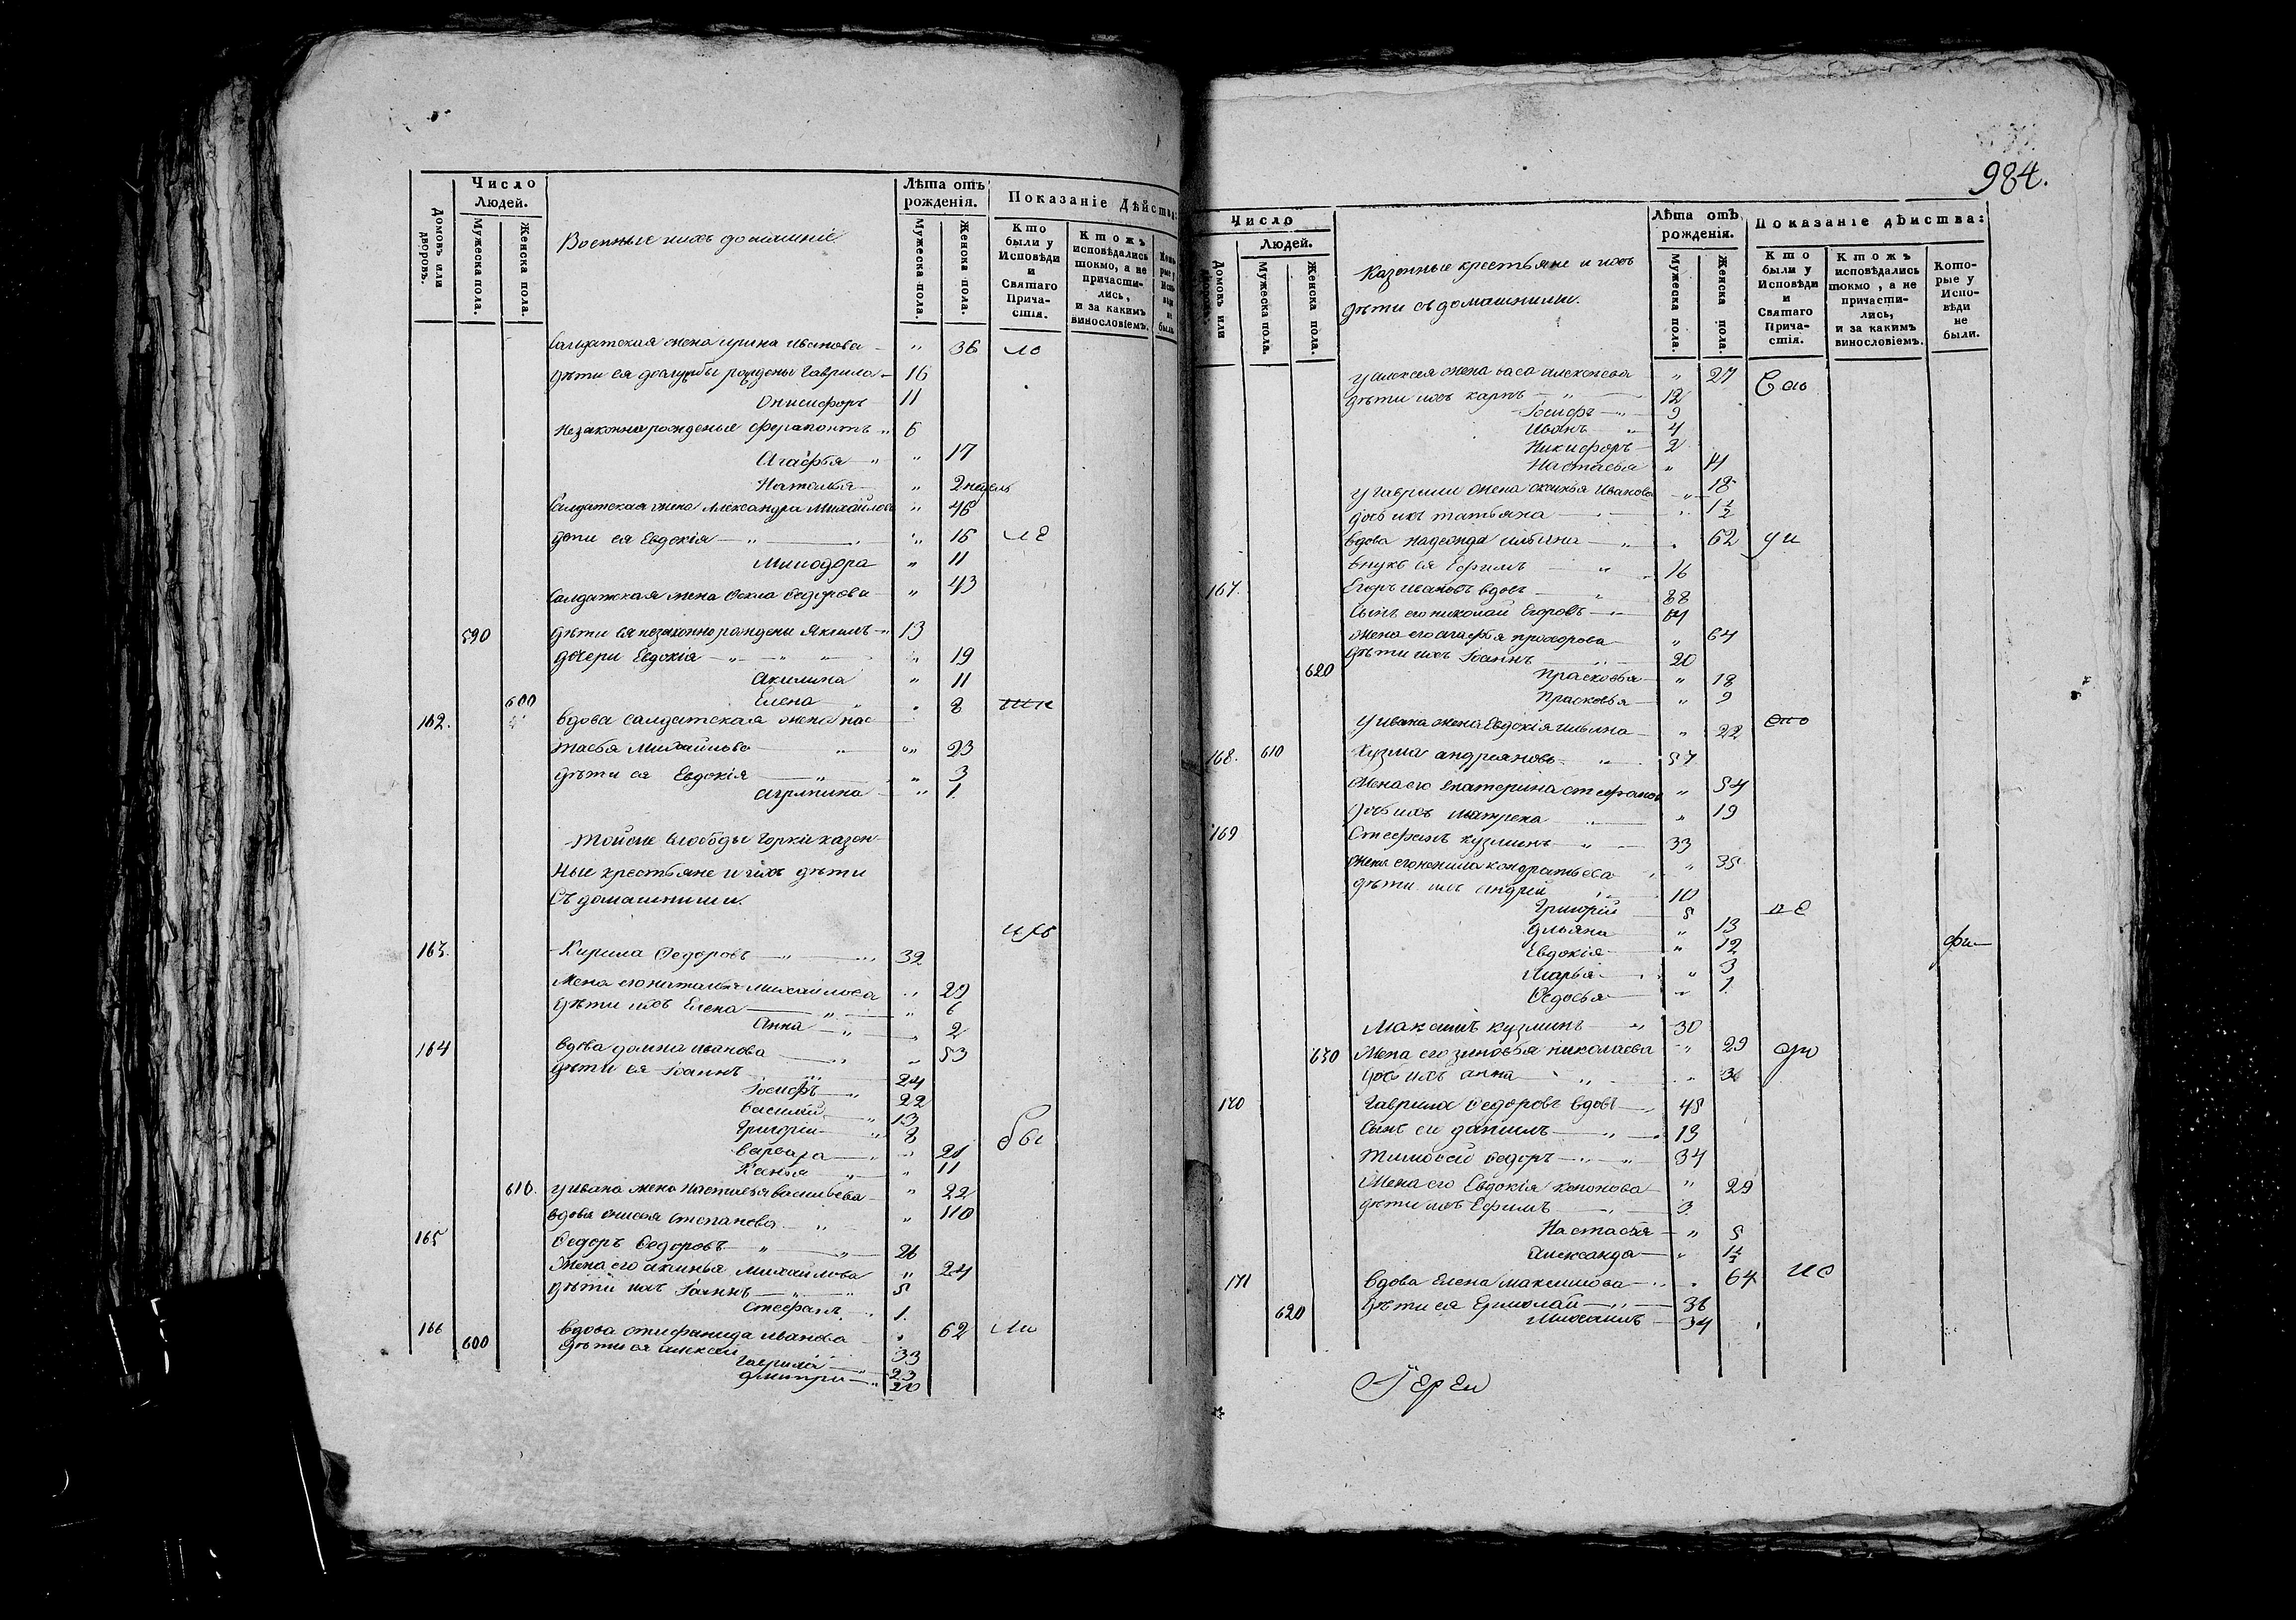 Число
Людей.
Домовъ или дворовъ.
Мужеска пола.
Женска пола.
Военные ихъ домашніе
Лѣта отъ рожденія.
Мужеска пола.
Женска пола.
Показаніе Дѣйства:
Кто были у Исповѣди и Святаго Причастія.
Ктожъ исповѣдались токмо, а не причастились, и за какимъ винословіемъ.
Салдатская жена ирина иванова 36
дѣти ея дослужбы рождены Гаврила 16
Онисифоръ 11
незаконно рожденые ферапонтъ 6
Агафья 17
Наталья 2 недель
Салдатская жена Александра Михайлова 46
дети ея Евдокія 16
Минодора 11
Салдатская жена Фекла Федорова 43
590 дѣти ея незаконно рождени Якимъ 13
дочери Евдокія 19
Акилина 11
600 Елена 8
162. вдова салдатская жена нас
тасья Михайлова 23
дѣти ея Евдокія 3
агрпина 1.
Тойже слободы Горки казен
ные крестьяне и ихъ дѣти
съ домашними.
163. Кирила Федоровъ 32
Жена его наталья михайлова 29
дѣти ихъ Елена 6
Анна 2
164 вдова домна иванова 53
дѣти ея Іоаннъ 24
Іосифъ 22
василий 13
Григории 8
варвара 21
Ксенья 11
610. у ивана жена Настасья васильева 22
вдова анисья степанова 110
165 Федоръ Федоровъ 26
Жена его акинья Михайлова 24
дѣти ихъ Іоаннъ 5
Стефанъ 1.
166 вдова стифанида иванова 62
600 дѣти ея алексей 33
Гаврила 23
дмитри 20
984.
Число
Людей.
Домовъ или дворовъ.
Мужеска пола.
Женска пола.
Казенные крестьяне и ихъ
дѣти съ домашними.
Лѣта отъ рожденія.
Мужеска пола.
Женска пола.
Показаніе дѣйства:
Кто были у Исповѣди и Святаго Причастія.
Ктожъ исповѣдались токмо, а не причастились, и за какимъ винословіемъ.
Которые у Исповѣди не были.
у алексея жена васа алексеева 27
дѣти ихъ карпъ 12
Іосифъ 9
Иванъ 4
Никифоръ 2
Настасья 14
у гаврили жена аксинья Иванова 18
дочь ихъ татьяна 1 1/2
вдова надежда ильина 62
внукъ ея Ефимъ 16
167. Егоръ ивановъ вдовъ 88
Сынъ его николай Егоровъ 64
Жена его агафья прохорова 64
дѣти ихъ Іоаннъ 20
620 Прасковья 18
Прасковья 9
у ивана жена Евдокія ильина 22
168. 610 Кузма андреяновъ 57
Жена его екатерина стефанов 54
дочь ихъ матрена 19
169 Стефанъ кузминъ 33
Жена его ненила кондратьева 35
дѣти ихъ андрей 10
Григорій 5
Ульяна 13
Евдокія 12
Марья 3
Федосья 1.
Максимъ кузминъ 30
630 Жена его зиновья николаева 29
дочь ихъ анна 3
170 Гаврила Федоровъ вдовъ 45
Сынъ ево данилъ 13
тимофей федоръ 34
Жена его Евдокія кононова 29
дѣти ихъ Ефимъ 3
Настасья 5
Александа 1 1/2
171 вдова Елена максимова 64
620 дѣти ея Ермолай 36
Михаилъ 34
Іереи